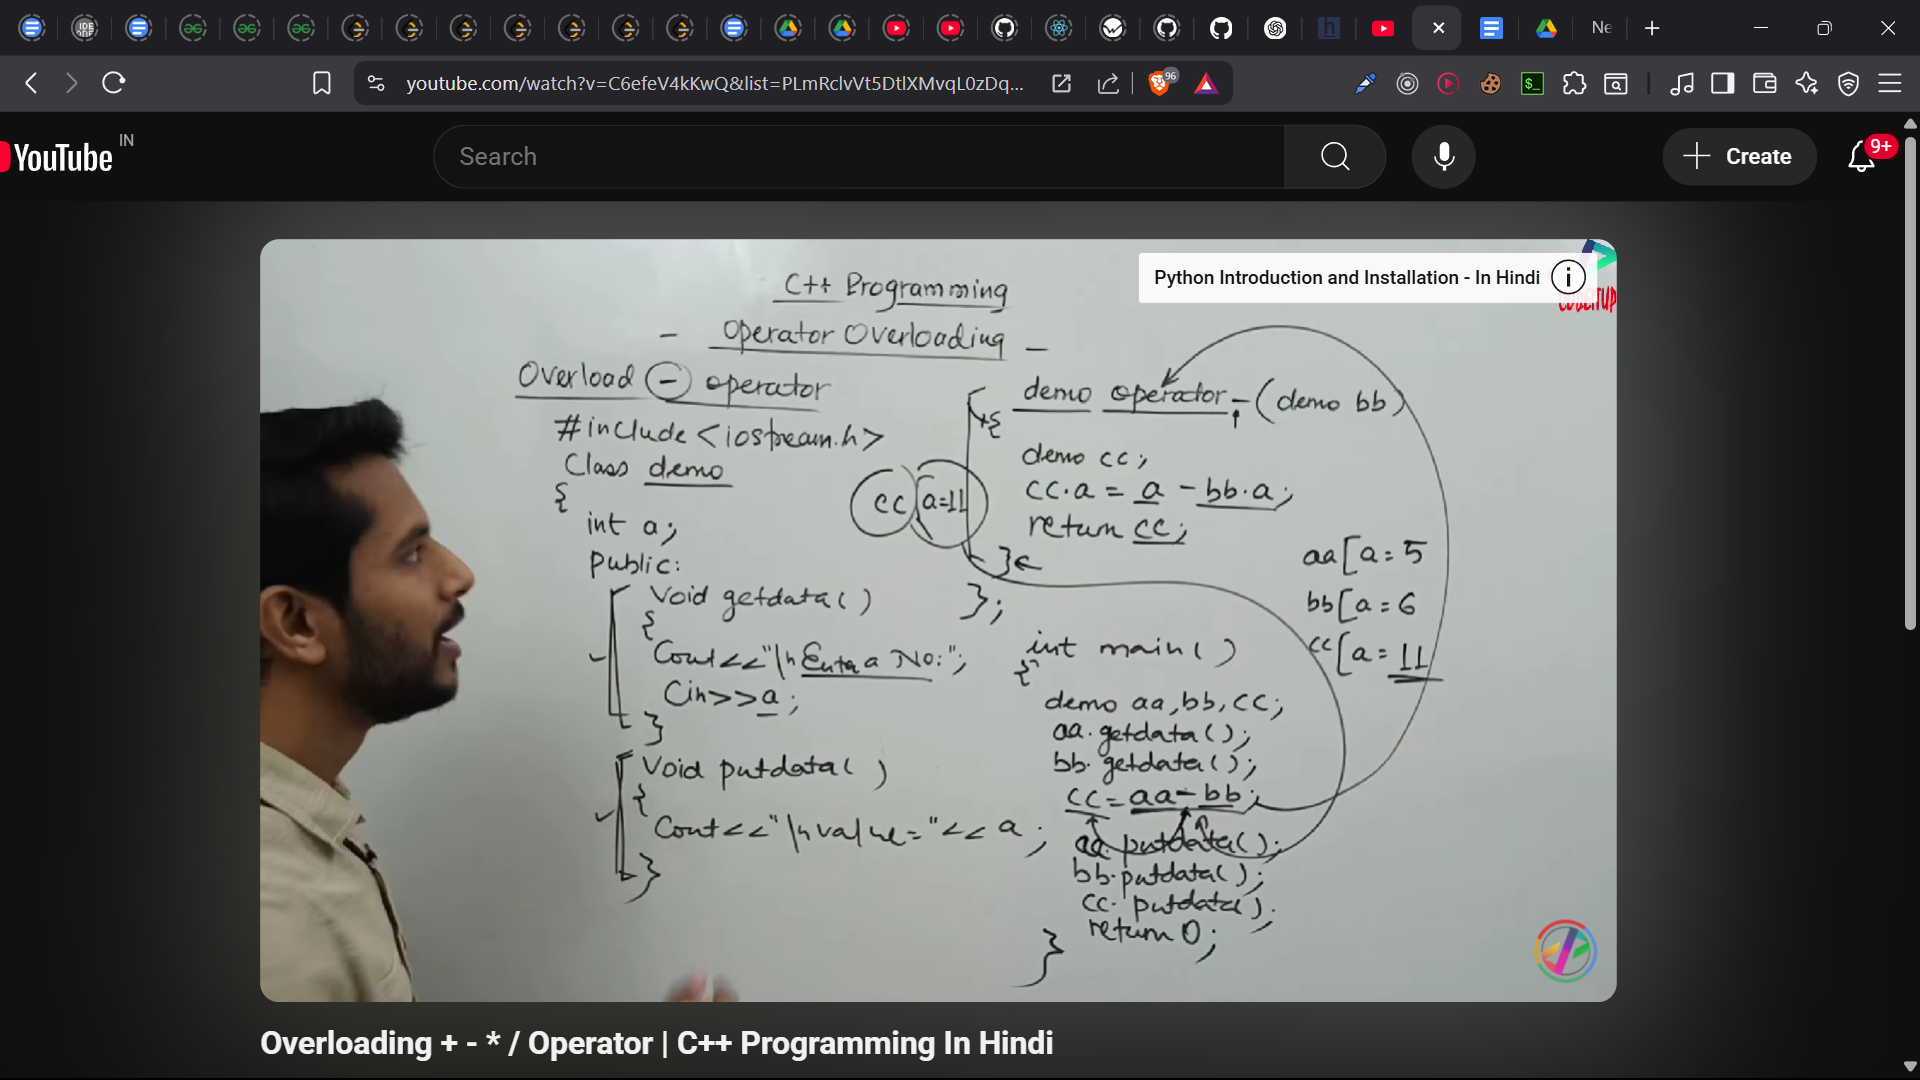 Ne
youtube.com/watch?v=C6efeV4kKwQ&list=PLmRclvVt5DtlXMvqL0zDq...
96
YouTube IN
Search
Create
9+
Python Introduction and Installation - In Hindi
C++ Programming
- Operator Overloading -
Overload - operator
#include <iostream.h>
Class demo
{
int a;
Public:
Void getdata( )
{
Cout<<"\n Enter a No:";
Cin>>a;
}
Void putdata( )
{
Cout<<"\n value="<< a ;
}
cc a=11
demo operator-(demo bb)
{
demo cc;
cc.a = a - bb.a;
return cc;
}
};
int main( )
{
demo aa,bb,cc;
aa.getdata( );
bb.getdata( );
cc=aa-bb;
aa.putdata( );
bb.putdata( );
cc.putdata( );
return 0;
}
aa[a=5
bb[a=6
cc[a=11
Overloading + - * / Operator | C++ Programming In Hindi